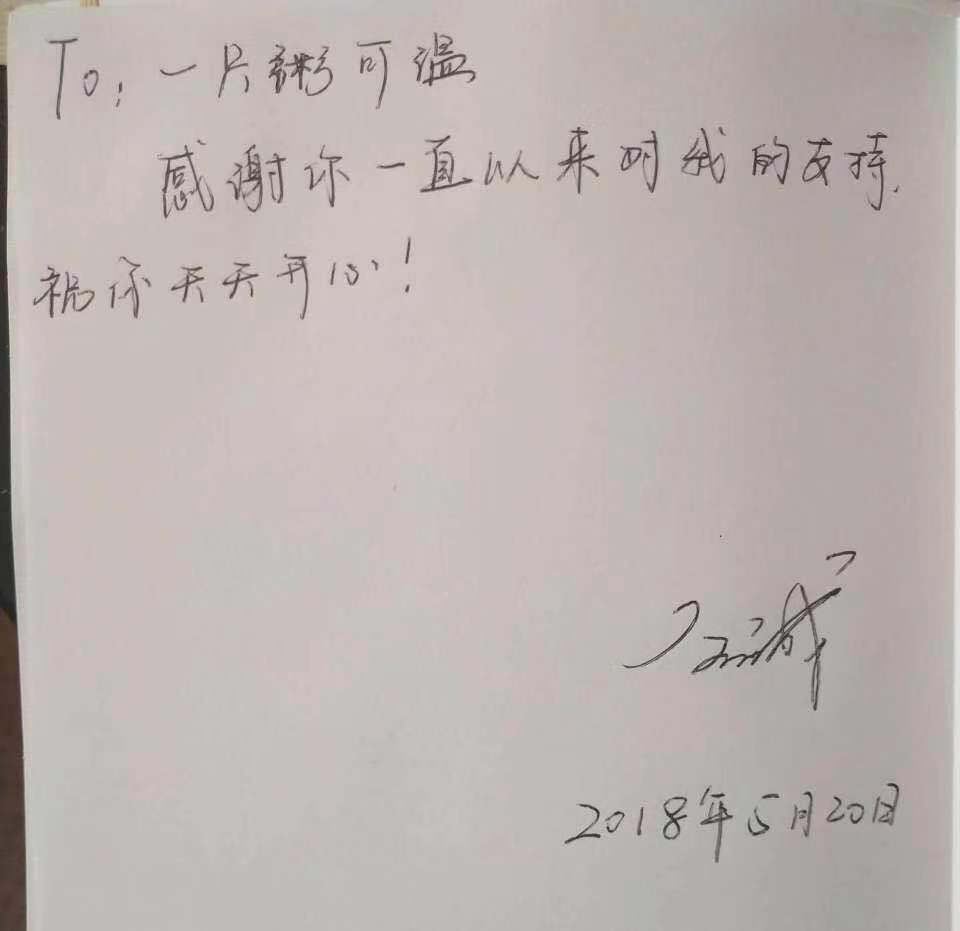 To: 一片粥可温
感谢你一直以来对我的支持.
祝你天天开心!
2018年5月20日